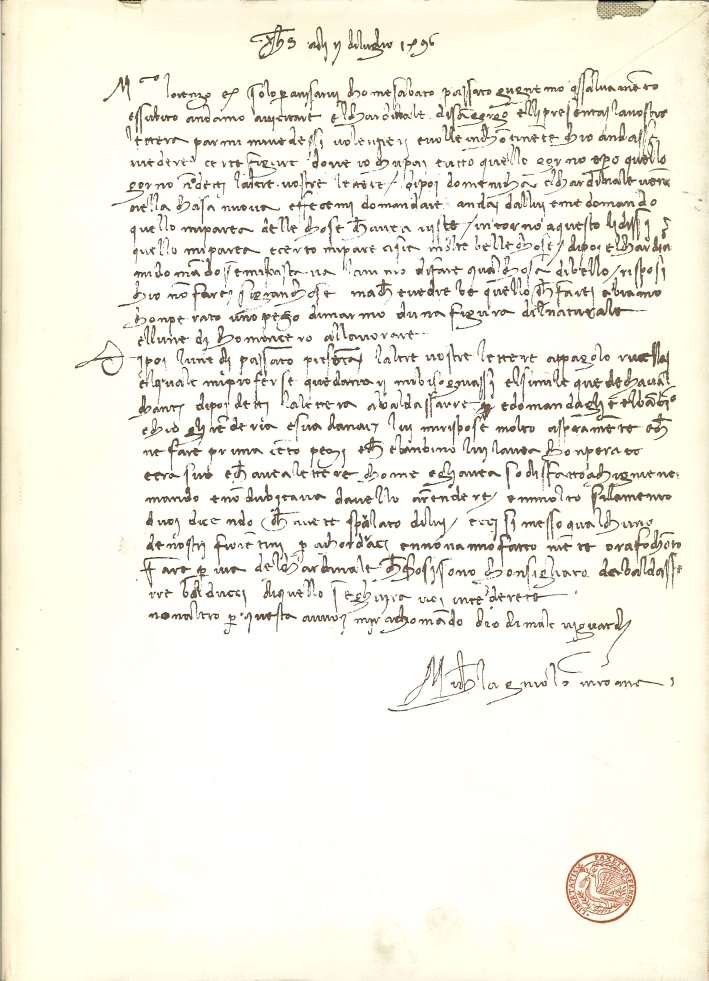 Xp̄s adi ii di luglio 1496
Mco lorenzo ec̄ solo p avisarvi chome sabato passato giugnemo assalvamento
essubito andamo avicitare el chardinale disā giorgio elli presentai la vostra
lettera parmi mi vedessi volentieri evolle inchōtinente chio andassi
a vedere certe figure dove io chupai tutto quello giorno epo quello
giorno nō detti laltre vostre lettere / dipoi domenicha el chardinale venne
nella chasa nuova effecemi domandare andai dallui eme domando
quello miparea delle chose chavea viste / intorno aquesto lidissi
quello miparea ecerto mipare cisia molte belle chose / dipoi el chardi
midomādo semibastava lanimo difare qualchosa dibello / risposi
chio nō farei sigran chose mach̄ evedrebe quello ch̄ farei abiamo
chonperato uno pezo dimarmo duna figura delnaturale
ellunedi chomincero allavorare
Dipoi lunedi passato presētai laltre vostre lettere appagolo rucellai
elquale miproferse quedanari mibisogniassi elsimile que dechaval
chanti dipoi detti lalettera abaldassarre edomandagli elbābino
echio glirēderia esua danari / lui mirispose molto aspramēte ech̄
ne fare prima cēto pezi ech̄ elbanbino lui lavea chonperato
eera suo ech̄ avea lettere chome egliavea sodisfatto achi gniene
mando enō dubitava davello arēdere / emmolto silamento
divoi dicendo ch̄ avete sparlato dilui / ecci si messo qualchuno
de nostri fiorentini p achordarci ennonāno fatto niente orafochōto
fare p via delchardinale ch̄ chosi sono chonsigliato dabaldassa
rre balducci diquello seghuira voi intēderete
nonaltro p questa avvoi mirachomando dio dimale viguardi
Michelagniolo inroma
LIBERTATIS PAX ET DEFENSIO